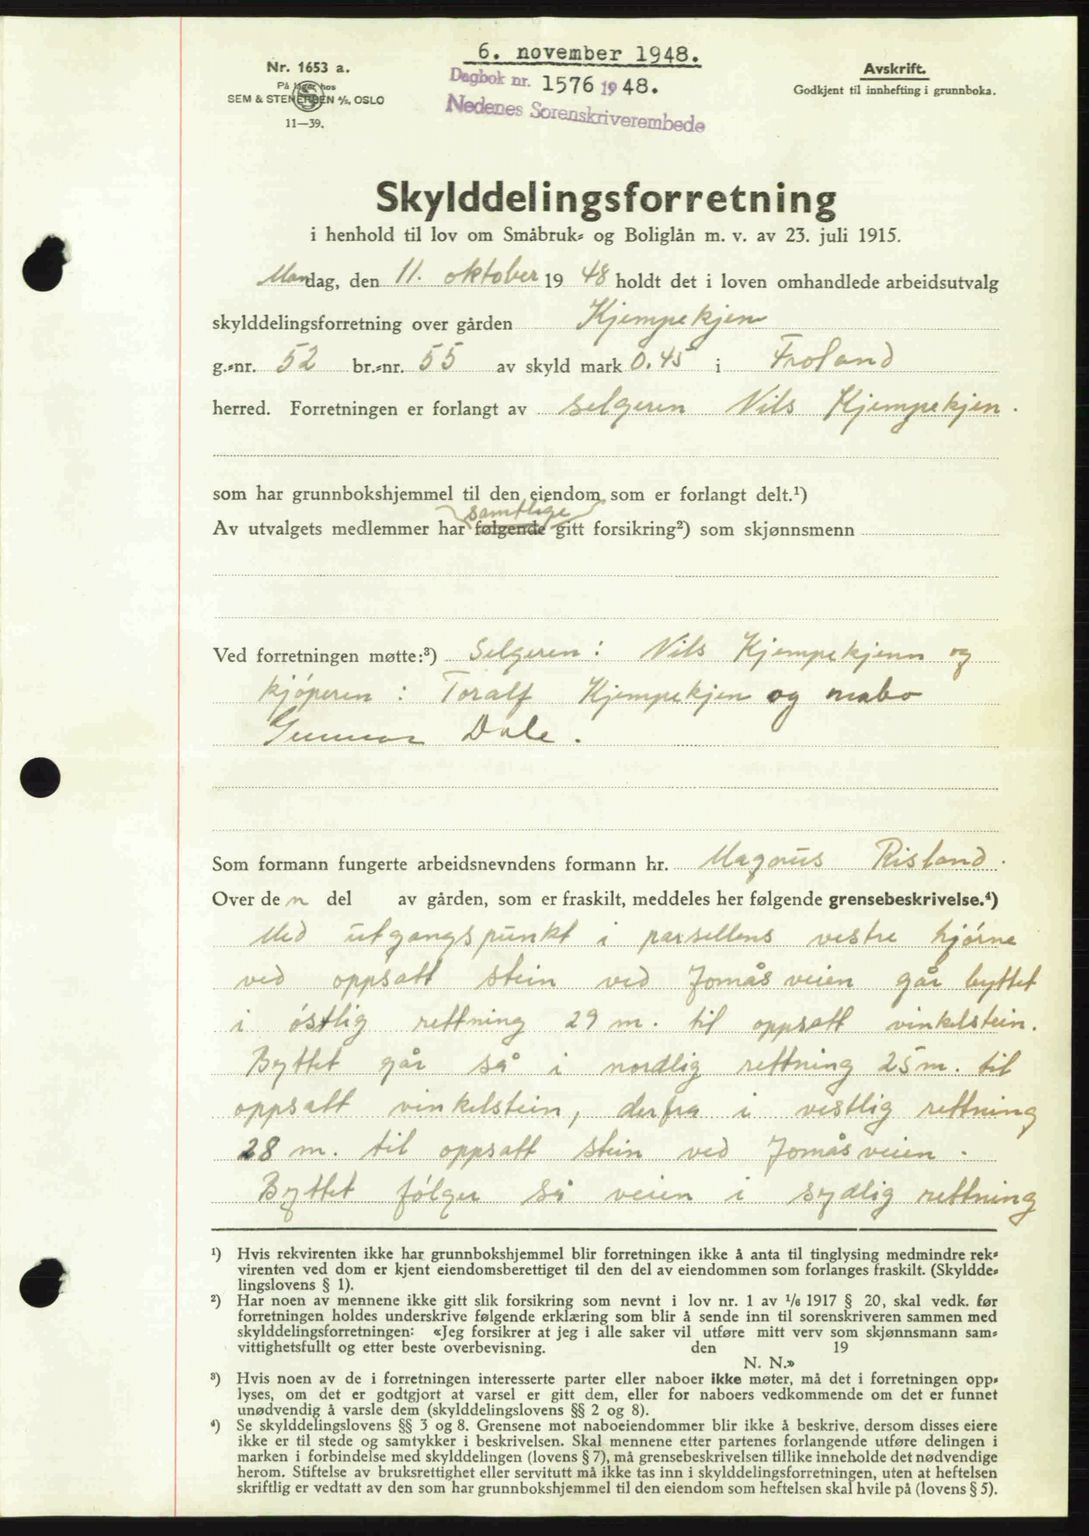 6. november 1948.
Nr. 1653 a.
På lager hos
SEM & STENERSEN A/S, OSLO
11—39.
Dagbok nr. 1576 1948.
Nedenes Sorenskriverembede
Avskrift.
Godkjent til innhefting i grunnboka.
Skylddelingsforretning
i henhold til lov om Småbruk- og Boliglån m. v. av 23. juli 1915.
Mandag, den 11. oktober 1948 holdt det i loven omhandlede arbeidsutvalg
skylddelingsforretning over gården Kjempekjen
g.-nr. 52 br.-nr. 55 av skyld mark 0.45 i Froland
herred. Forretningen er forlangt av selgeren Nils Kjempekjen.
som har grunnbokshjemmel til den eiendom som er forlangt delt.¹)
samtlige
Av utvalgets medlemmer har følgende gitt forsikring²) som skjønnsmenn
Ved forretningen møtte:³) Selgeren: Nils Kjempekjenn og
kjóperen: Toralf Kjempekjen og nabo
Gunnar Dale.
Som formann fungerte arbeidsnevndens formann hr. Magnus Risland.
Over den del av gården, som er fraskilt, meddeles her følgende grensebeskrivelse.⁴)
Med utgangspunkt i parsellens vestre hjórne
ved oppsatt stein ved Jomåsveien går byttet
i óstlig rettning 29 m. til oppsatt vinkelstein.
Byttet går så i nordlig rettning 25 m. til
oppsatt vinkelstein, derfra i vestlig rettning
28 m. til oppsatt stein ved Jomåsveien.
Byttet fólger så veien i sydlig rettning
¹) Hvis rekvirenten ikke har grunnbokshjemmel blir forretningen ikke å anta til tinglysing medmindre rek-
virenten ved dom er kjent eiendomsberettiget til den del av eiendommen som forlanges fraskilt. (Skyldde-
lingslovens § 1).
²) Har noen av mennene ikke gitt slik forsikring som nevnt i lov nr. 1 av 1/6 1917 § 20, skal vedk. før
forretningen holdes underskrive følgende erklæring som blir å sende inn til sorenskriveren sammen med
skylddelingsforretningen: «Jeg forsikrer at jeg i alle saker vil utføre mitt verv som skjønnsmann sam-
vittighetsfullt og etter beste overbevisning. den 19
N. N.»
³) Hvis noen av de i forretningen interesserte parter eller naboer ikke møter, må det i forretningen opp-
lyses, om det er godtgjort at varsel er gitt dem, eller for naboers vedkommende om det er funnet
unødvendig å varsle dem (skylddelingslovens §§ 2 og 8).
⁴) Se skylddelingslovens §§ 3 og 8. Grensene mot naboeiendommer blir ikke å beskrive, dersom disses eiere
ikke er til stede og samtykker i beskrivelsen. Skal mennene etter partenes forlangende utføre delingen i
marken i forbindelse med skylddelingen (lovens § 7), må grensebeskrivelsen tillike inneholde det nødvendige
herom. Stiftelse av bruksrettighet eller servitutt må ikke tas inn i skylddelingsforretningen, uten at heftelsen
skriftlig er vedtatt av den som har grunnbokshjemmel til den eiendom som heftelsen skal hvile på (lovens § 5).